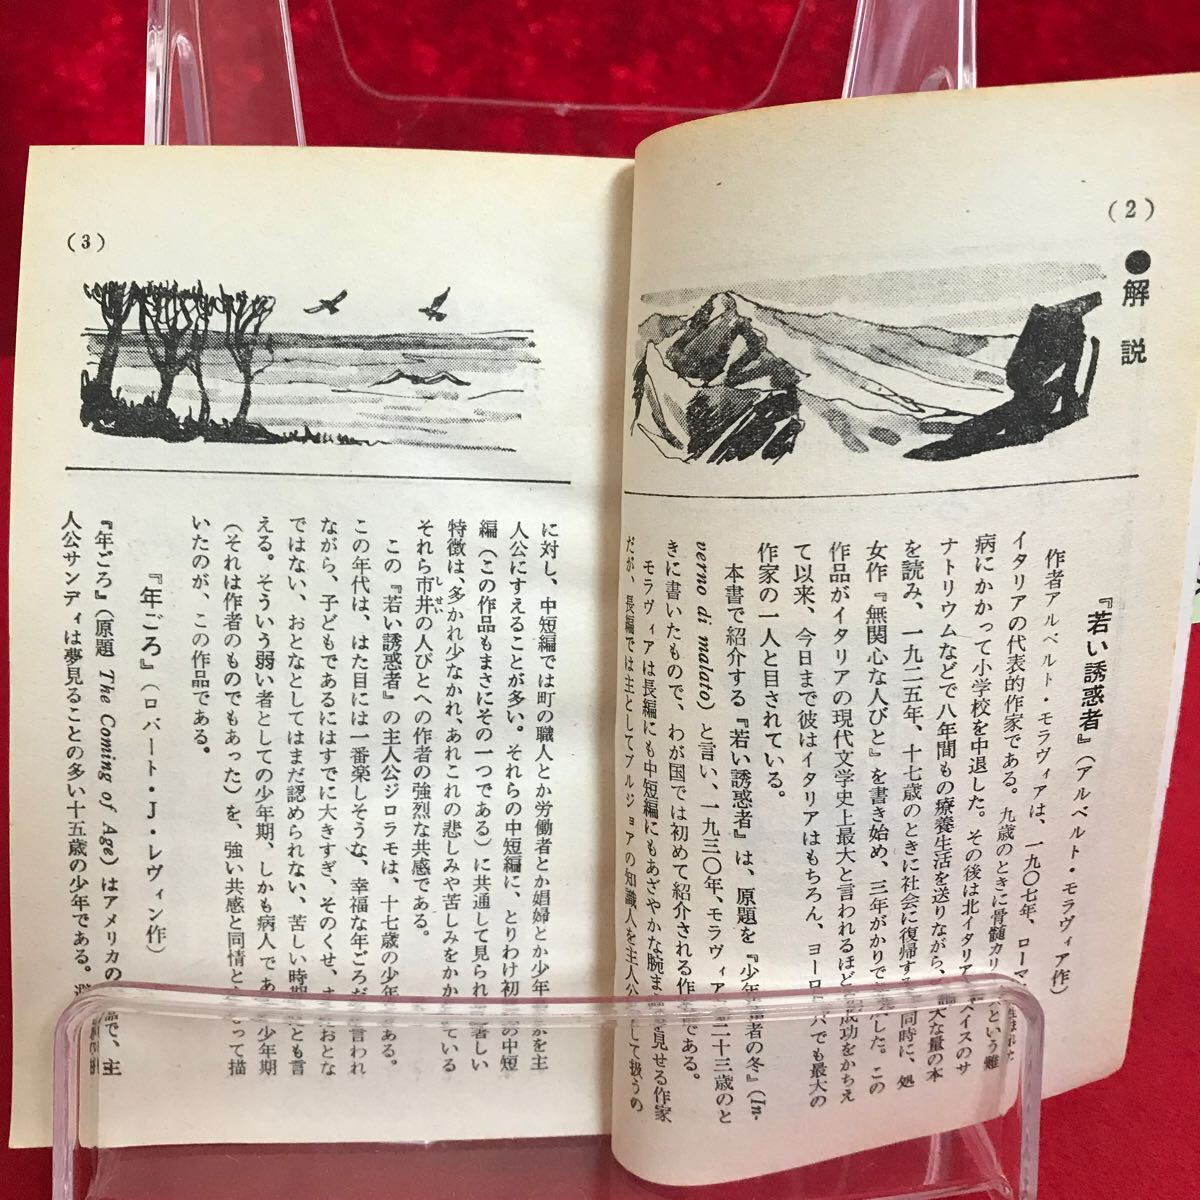 (2)
●解説
『若い誘惑者』(アルベルト・モラヴィア作)
作者アルベルト・モラヴィアは、一九〇七年、ローマ
イタリアの代表的作家である。九歳のときに骨髄カリ という難
病にかかって小学校を中退した。その後は北イタリア スイスのサ
ナトリウムなどで八年間もの療養生活を送りながら、 大な量の本
を読み、一九二五年、十七歳のときに社会に復帰する 同時に、処
女作『無関心な人びと』を書き始め、三年がかりで した。この
作品がイタリアの現代文学史上最大と言われるほど 成功をかちえ
て以来、今日まで彼はイタリアはもちろん、ヨーロッパでも最大の
作家の一人と目されている。
本書で紹介する『若い誘惑者』は、原題を『少年 者の冬』(In-
verno di malato)と言い、一九三〇年、モラヴィア 二十三歳のと
きに書いたもので、わが国では初めて紹介される作 である。
モラヴィアは長編にも中短編にもあざやかな腕ま を見せる作家
だが、長編では主としてブルジョアの知識人を主人公 して扱うの
(3)
に対し、中短編では町の職人とか労働者とか娼婦とか少年 を主
人公にすえることが多い。それらの中短編に、とりわけ初 の中短
編(この作品もまさにその一つである)に共通して見られ 著しい
特徴は、多かれ少なかれ、あれこれの悲しみや苦しみをか ている
それら市井の人びとへの作者の強烈な共感である。
しせい
この『若い誘惑者』の主人公ジロラモは、十七歳の少年 ある。
この年代は、はた目には一番楽しそうな、幸福な年ごろだ 言われ
ながら、子どもであるにはすでに大きすぎ、そのくせ、ま おとな
ではない、おとなとしてはまだ認められない、苦しい時期 とも言
える。そういう弱い者としての少年期、しかも病人であ 少年期
(それは作者のものでもあった)を、強い共感と同情と って描
いたのが、この作品である。
『年ごろ』(ロバート・J・レヴィン作)
『年ごろ』(原題 The Coming of Age)はアメリカの で、主
人公サンディは夢見ることの多い十五歳の少年である。